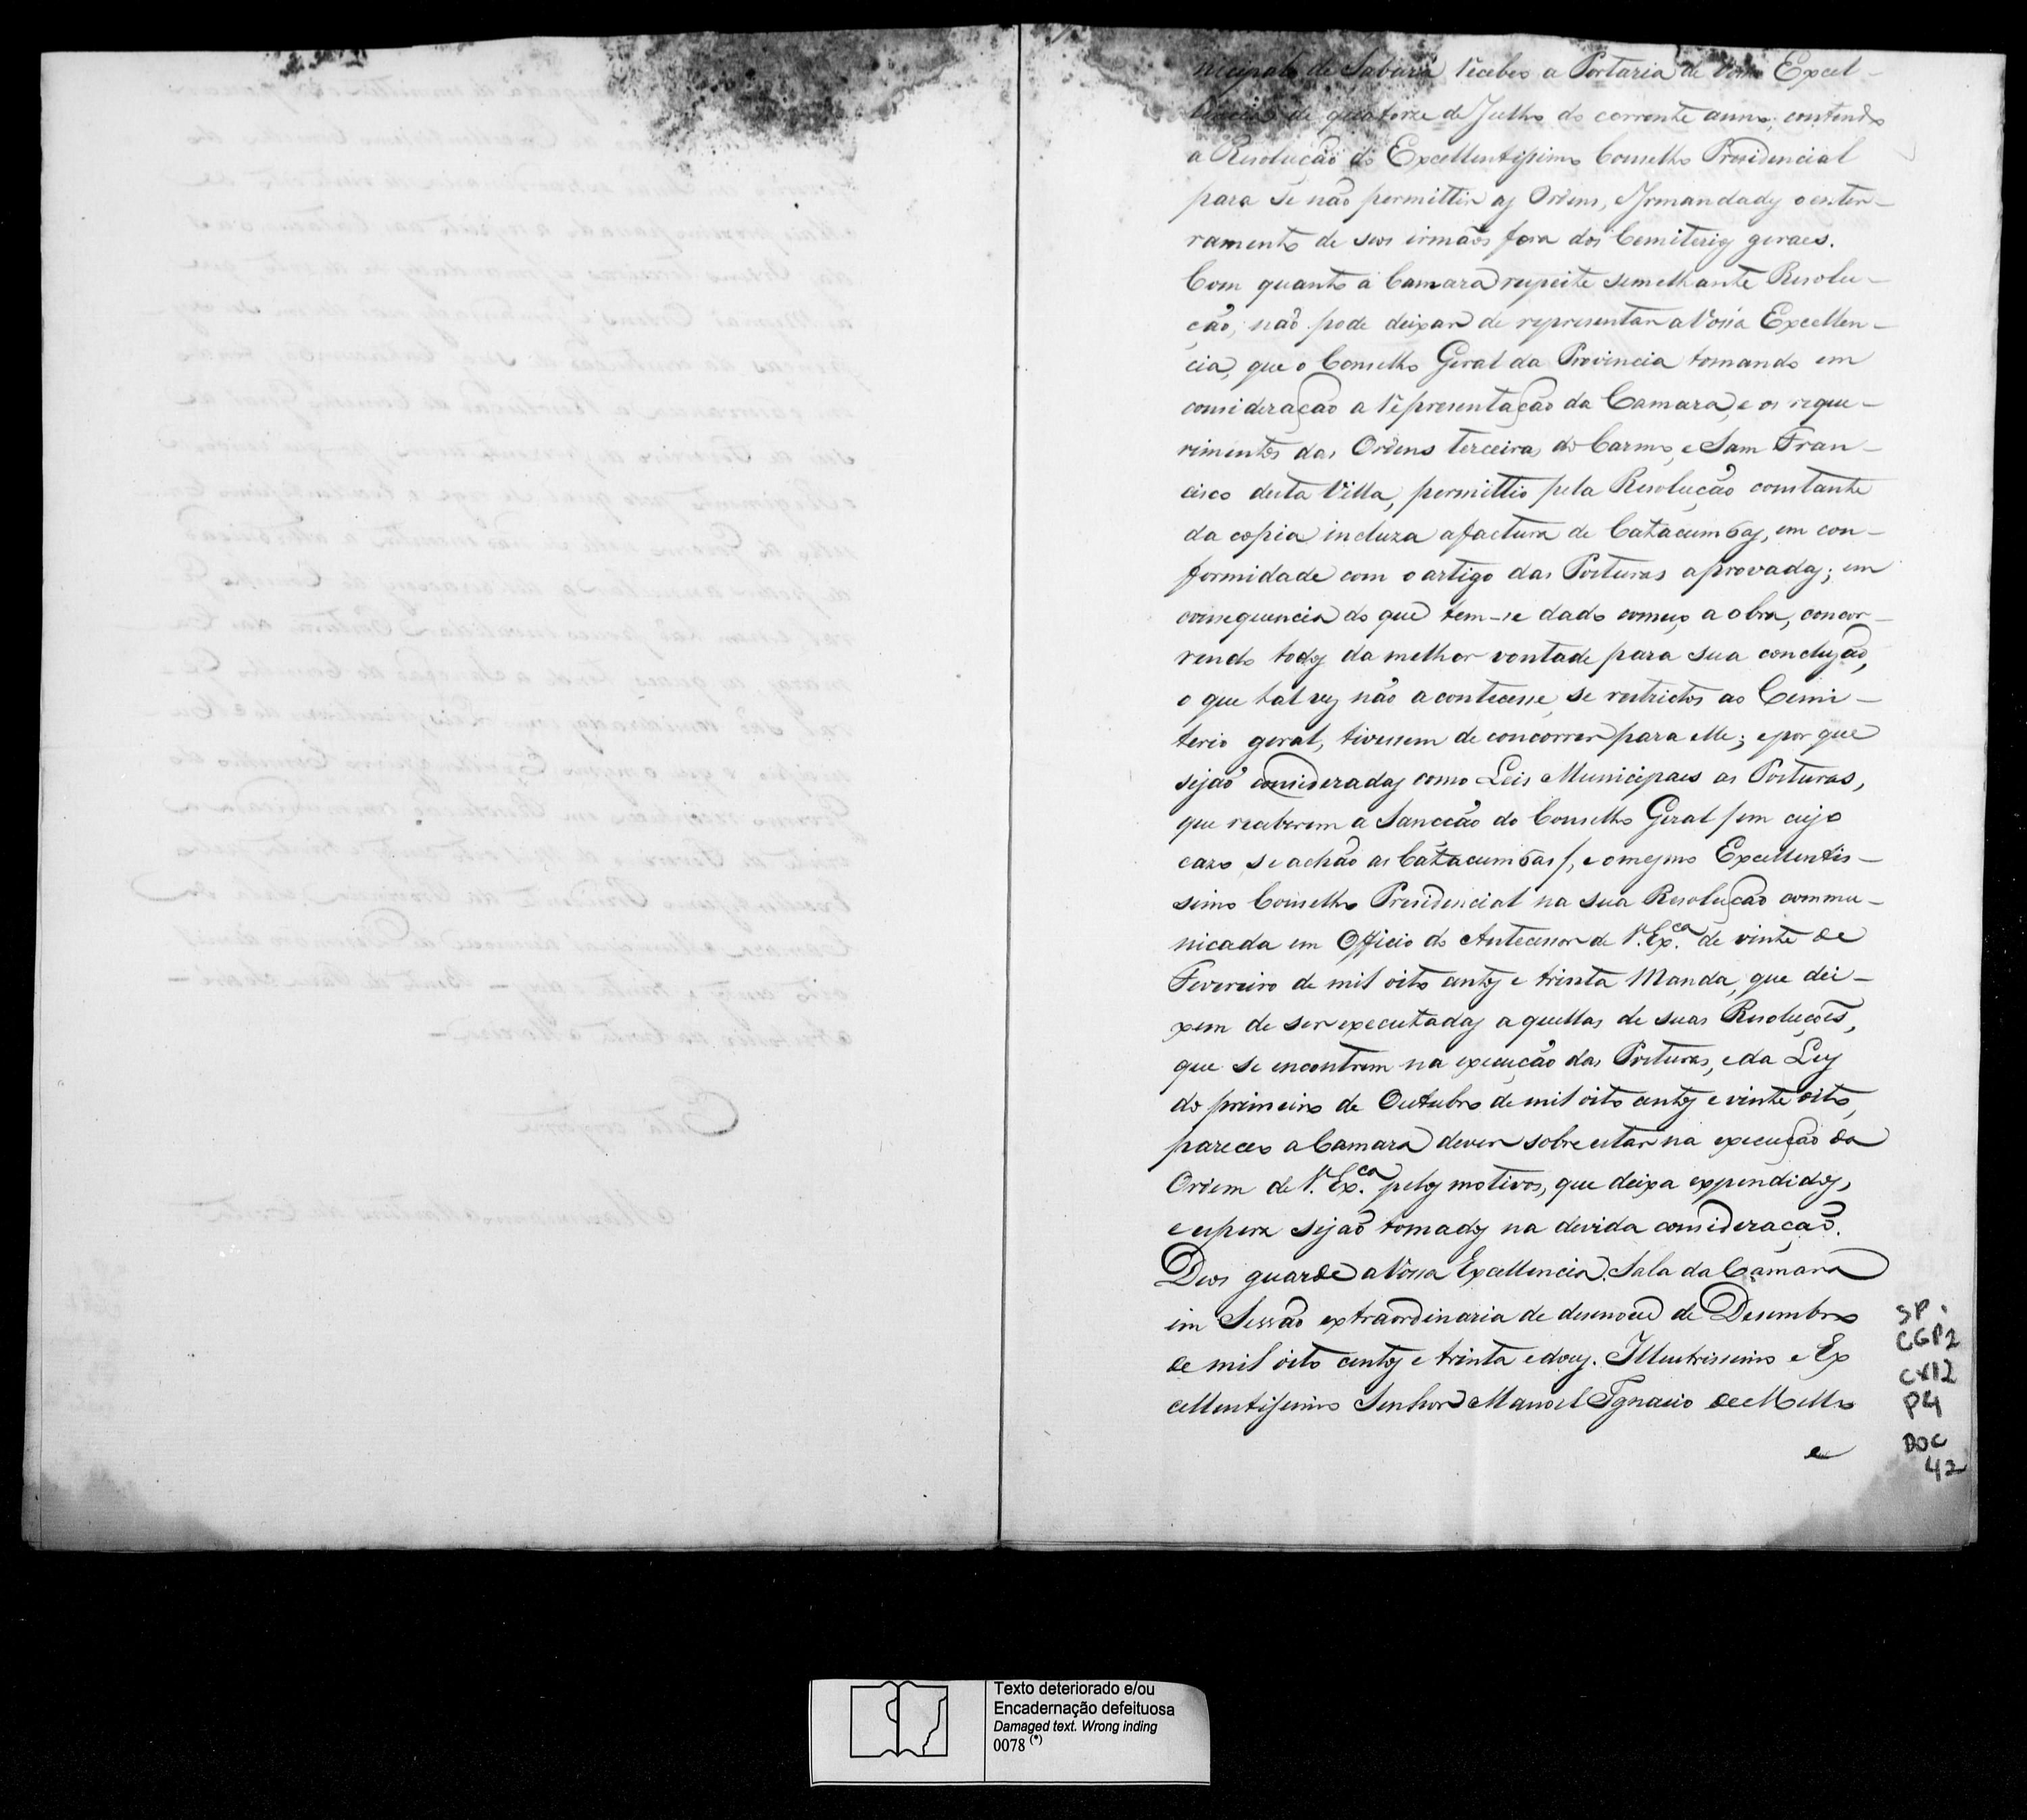 nicipal de Sabará recebeo a Portaria de Vossa Excel-
lencia de quatorze de Julho do corrente anno, contendo
a Resolução do Excellentissimo Conselho Presidencial
para se não permittir as Ordens, e Irmandades o enter-
ramento de seos irmãos fora dos Cemiterios geraes.
Com quanto a Camara respeite semelhante Resolu-
ção, não pode deixar de representar a Vossa Excellen-
cia, que o Conselho Geral da Provincia tomando em
consideração a representação da Camara, e os reque-
rimentos das Ordens terceira do Carmo, e Sam Fran-
cisco desta Villa, permittio pela Resolução constante
da copia incluza a factura de Catacumbas, em con-
formidade com o artigo das Posturas aprovadas; em
consequencia do que tem-se dado começo a obra, concor-
rendo todos da melhor vontade para sua conclusão,
o que talvez não acontecesse, se restrictos ao Cemi-
terio geral, tivessem de concorrer para elle; e por que
sejão consideradas como Leis Municipaes as Posturas,
que receberem a Sancção do Conselho Geral / em cujo
cazo se achão as Catacumbas /, e o mesmo Excellentis-
simo Conselho Presidencial na sua Resolução commu-
nicada em Officio do Antecessor de V. Ex.ca de vinte de
Fevereiro de mil oito centos e trinta Manda, que dei-
xem de ser executadas aquellas de suas Resoluções,
que se encontrem na execução das Posturas, e da Ley
do primeiro de Outubro de mil oito centos e vinte oito,
pareceo a Camara dever sobre estar na execução da
Ordem de V. Ex.ca pelos motivos, que deixa expendidos,
e espera sejão tomados na devida consideração.
Deos guarde a Vossa Excellencia. Sala da Camara
em Sessão extraordinaria de desenove de Desembro
de mil oito centos e trinta e dous. Illustrissimo e Ex
cellentissimo Senhor Manoel Ignacio de Mello
e
SP.
CGP2
CX12
P4
DOC
42
Texto deteriorado e/ou
Encadernação defeituosa
Damaged text. Wrong inding
0078 (*)